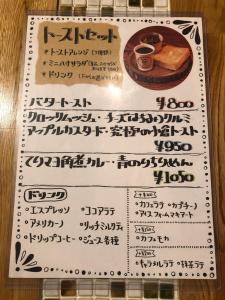 トーストセット
・トーストアレンジ(7種類)
・ミニハオサラダ
・ドリンク
バタートースト ¥800
クロックムッシュ・チーズはちみつクルミ
アップルカスタード・究極の小倉トースト
¥950
てりマヨ角煮カレー・青のりらーめん
¥1050
ドリンク
・エスプレッソ
・アメリカーノ
・ドリップコーヒー
・ココアラテ
・リッチミルクティ
・ジュース各種
・カフェラテ・カプチーノ
・アイスフォームマキアート
・カフェモカ
・キャラメルラテ・抹茶ラテ